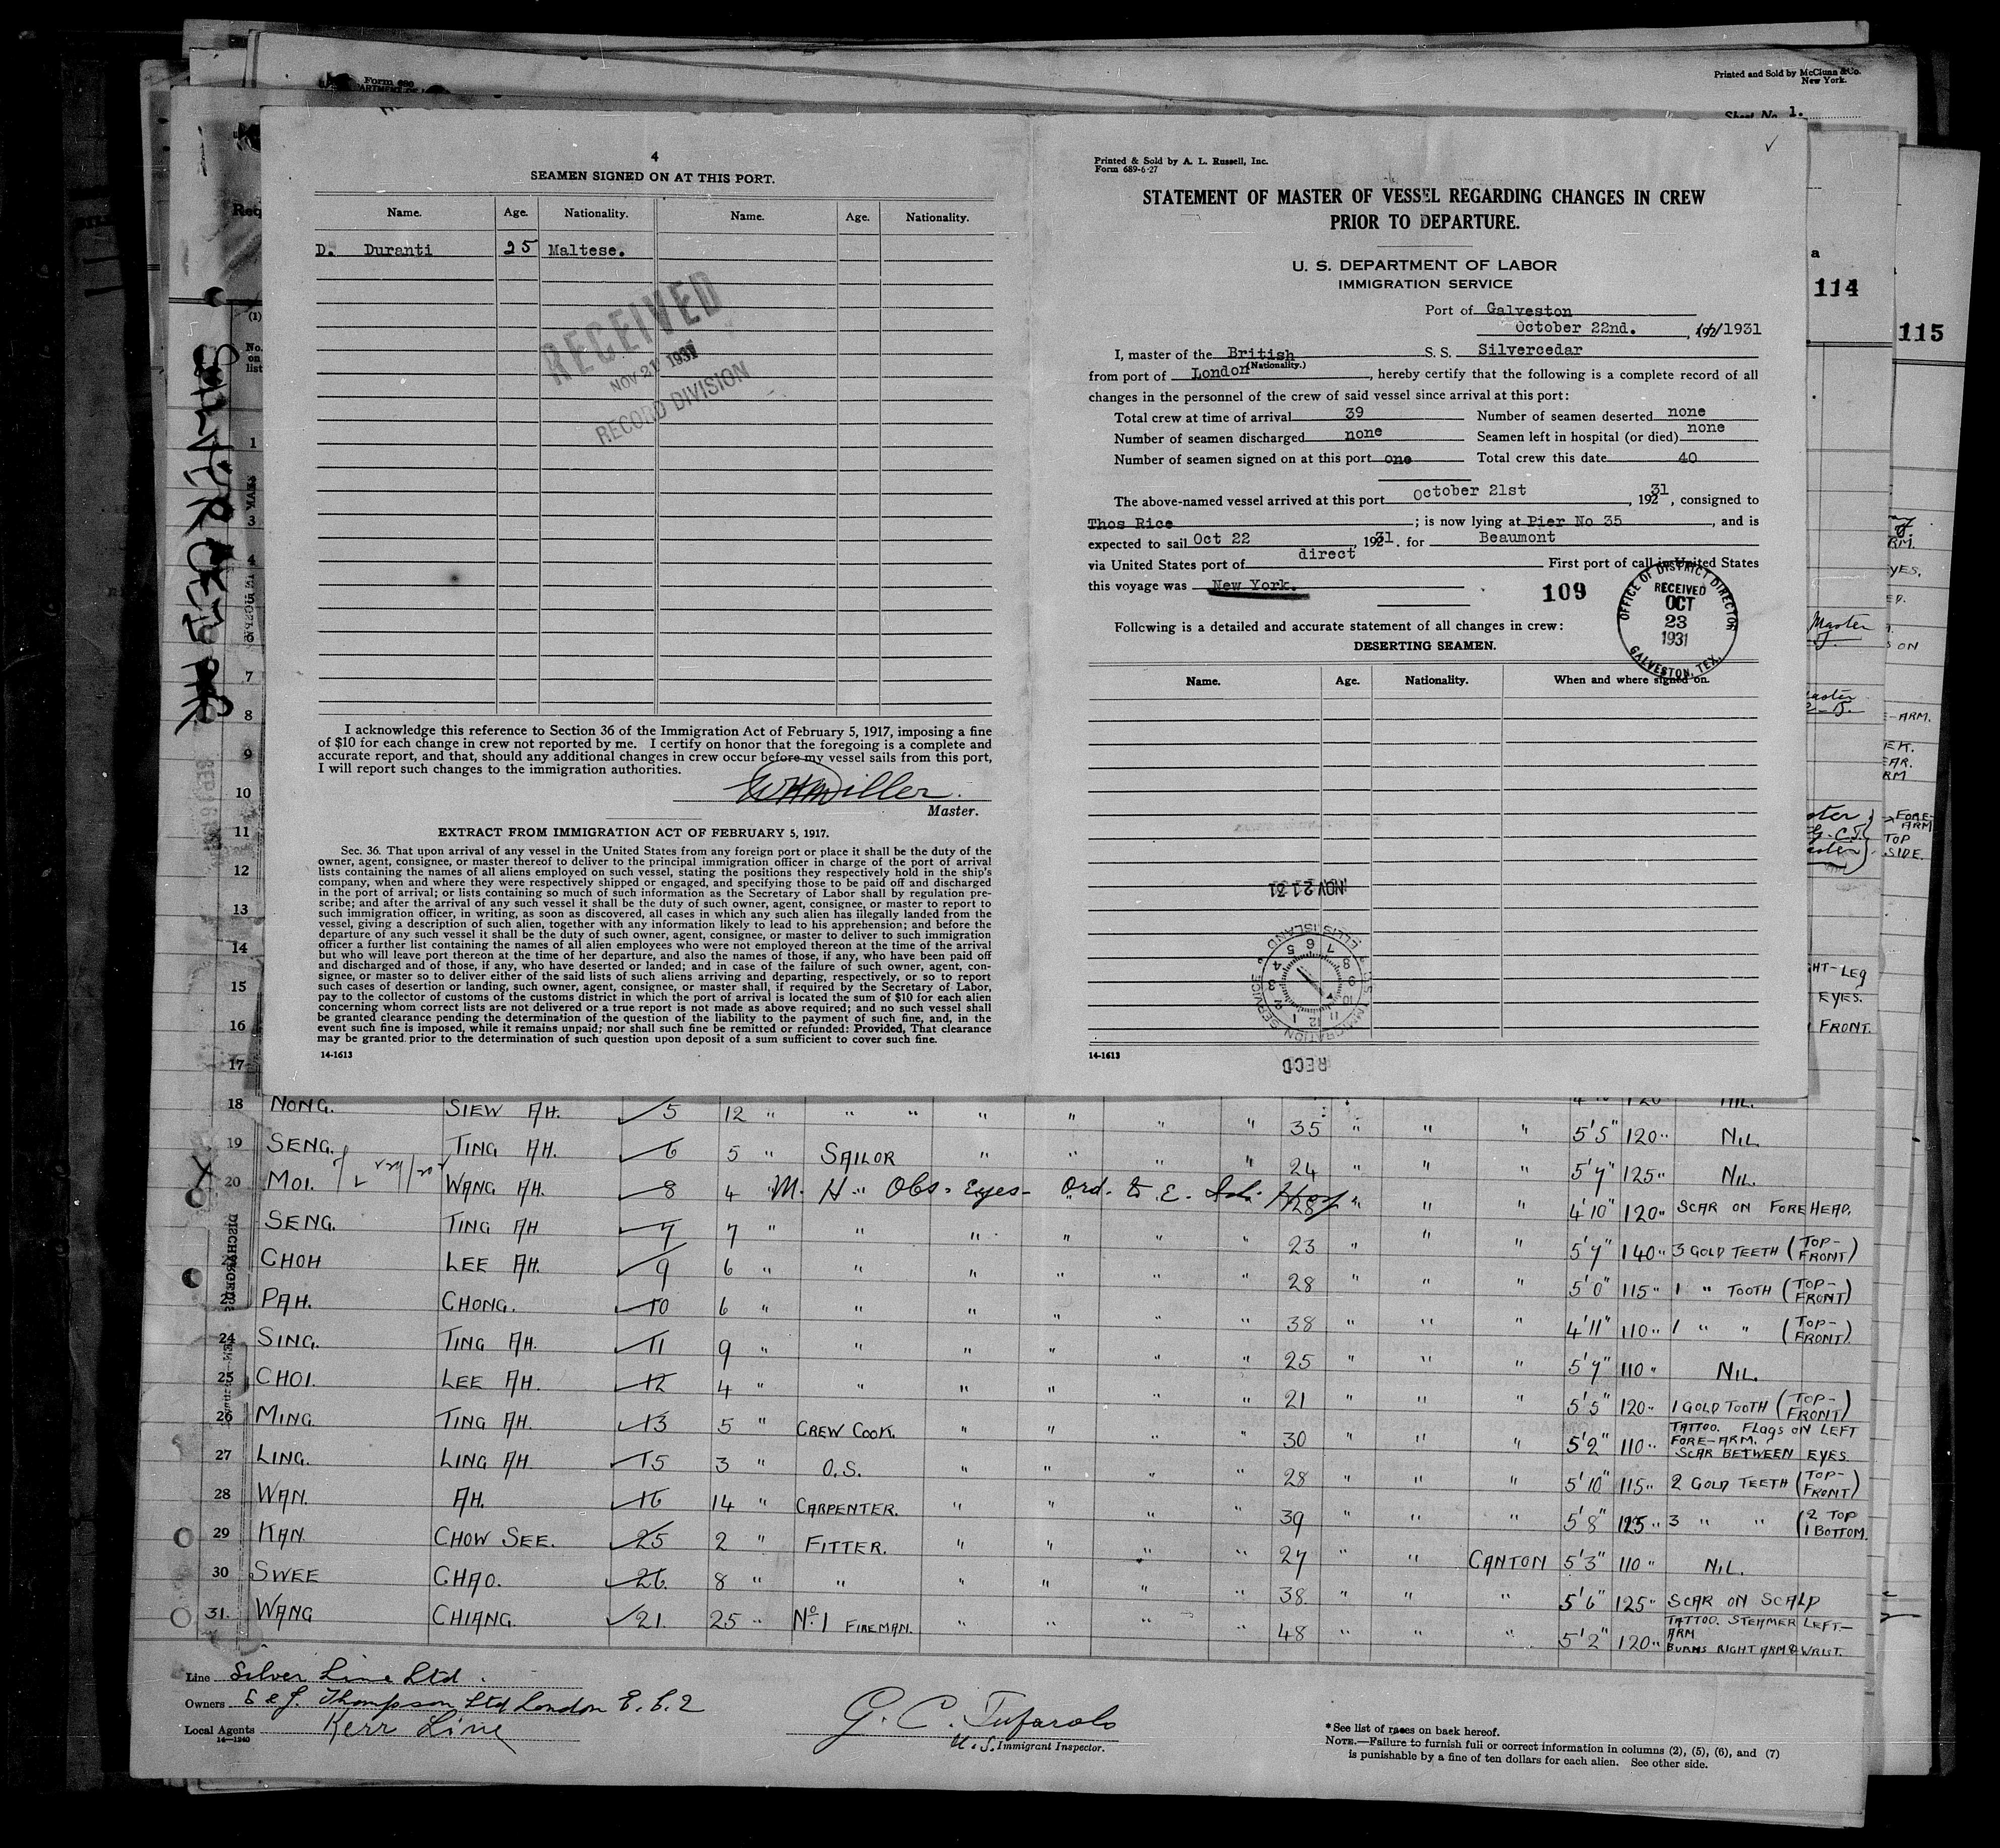 Form 689
Printed and Sold by McClunn & Co.
New York.
Sheet No. 1.
4
SEAMEN SIGNED ON AT THIS PORT.
Name. Age. Nationality. Name. Age. Nationality.
D. Duranti 25 Maltese.
RECEIVED
NOV 21 1931
RECORD DIVISION
I acknowledge this reference to Section 36 of the Immigration Act of February 5, 1917, imposing a fine
of $10 for each change in crew not reported by me. I certify on honor that the foregoing is a complete and
accurate report, and that, should any additional changes in crew occur before my vessel sails from this port,
I will report such changes to the immigration authorities.
Master.
EXTRACT FROM IMMIGRATION ACT OF FEBRUARY 5, 1917.
Sec. 36. That upon arrival of any vessel in the United States from any foreign port or place it shall be the duty of the
owner, agent, consignee, or master thereof to deliver to the principal immigration officer in charge of the port of arrival
lists containing the names of all aliens employed on such vessel, stating the positions they respectively hold in the ship's
company, when and where they were respectively shipped or engaged, and specifying those to be paid off and discharged
in the port of arrival; or lists containing so much of such information as the Secretary of Labor shall by regulation pre-
scribe; and after the arrival of any such vessel it shall be the duty of such owner, agent, consignee, or master to report to
such immigration officer, in writing, as soon as discovered, all cases in which any such alien has illegally landed from the
vessel, giving a description of such alien, together with any information likely to lead to his apprehension; and before the
departure of any such vessel it shall be the duty of such owner, agent, consignee, or master to deliver to such immigration
officer a further list containing the names of all alien employees who were not employed thereon at the time of the arrival
but who will leave port thereon at the time of her departure, and also the names of those, if any, who have been paid off
and discharged and of those, if any, who have deserted or landed; and in case of the failure of such owner, agent, con-
signee, or master so to deliver either of the said lists of such aliens arriving and departing, respectively, or so to report
such cases of desertion or landing, such owner, agent, consignee, or master shall, if required by the Secretary of Labor,
pay to the collector of customs of the customs district in which the port of arrival is located the sum of $10 for each alien
concerning whom correct lists are not delivered or a true report is not made as above required; and no such vessel shall
be granted clearance pending the determination of the question of the liability to the payment of such fine, and, in the
event such fine is imposed, while it remains unpaid; nor shall such fine be remitted or refunded: Provided, That clearance
may be granted prior to the determination of such question upon deposit of a sum sufficient to cover such fine.
14-1613
Printed & Sold by A. L. Russell, Inc.
Form 689-6-27
STATEMENT OF MASTER OF VESSEL REGARDING CHANGES IN CREW
PRIOR TO DEPARTURE.
U. S. DEPARTMENT OF LABOR
IMMIGRATION SERVICE
Port of Galveston
October 22nd. , 1931
I, master of the British S. S. Silvercedar
(Nationality.)
from port of London , hereby certify that the following is a complete record of all
changes in the personnel of the crew of said vessel since arrival at this port:
Total crew at time of arrival 39 Number of seamen deserted none
Number of seamen discharged none Seamen left in hospital (or died) none
Number of seamen signed on at this port one Total crew this date 40
The above-named vessel arrived at this port October 21st , 192 31 , consigned to
Thos Rice ; is now lying at Pier No 35 , and is
expected to sail Oct 22 , 192 31. for Beaumont
via United States port of direct First port of call in United States
this voyage was New York.
109
OFFICE OF DISTRICT DIRECTOR
RECEIVED
OCT
23
1931
GALVESTON, TEX.
Following is a detailed and accurate statement of all changes in crew:
DESERTING SEAMEN.
Name. Age. Nationality. When and where signed on.
NOV 21 31
IMMIGRATION SERVICE
ELLIS ISLAND
RECD
14-1613
114
115
SILVERCEDAR
18 NONG. SIEW AH. 5 12 " " " " " " " 35 " " " 5'5" 120 " NIL.
19 SENG. TING AH. 6 5 " SAILOR " " " " 24 " " " 5'7" 125 " NIL.
20 MOI. WANG AH. 8 4 " M. H. Obs. Eyes - Ord. to E. Isl. Hosp 28 " " " 4'10" 120 " SCAR ON FOREHEAD.
SENG. TING AH 7 7 " " " " " " 23 " " " 5'7" 140 " 3 GOLD TEETH (TOP-FRONT)
CHOH LEE AH. 9 6 " " " " " " 28 " " " 5'0" 115 " 1 " TOOTH (TOP-FRONT)
PAH. CHONG. 10 6 " " " " " " 38 " " " 4'11" 110 " 1 " " (TOP-FRONT)
24 SING. TING AH. 11 9 " " " " " " 25 " " " 5'7" 110 " NIL.
25 CHOI. LEE AH. 12 4 " " " " " " 21 " " " 5'5" 120 " 1 GOLD TOOTH (TOP-FRONT)
26 MING. TING AH. 13 5 " CREW COOK. " " " " 30 " " " 5'2" 110 " TATTOO. FLAGS ON LEFT FORE-ARM. SCAR BETWEEN EYES.
27 LING. LING AH 15 3 " O.S. " " " " 28 " " " 5'10" 115 " 2 GOLD TEETH (TOP-FRONT)
28 WAN. AH. 16 14 " CARPENTER. " " " " 39 " " " 5'8" 125 " 3 " " (2 TOP 1 BOTTOM.
29 KAN. CHOW SEE. 25 2 " FITTER. " " " " 27 " " CANTON 5'3" 110 " NIL.
30 SWEE CHAO. 26. 8 " " " " " " 38. " " " 5'6" 125 " SCAR ON SCALP
31. WANG CHIANG. 21. 25 " No. 1 FIREMAN. " " " " 48 " " " 5'2" 120 " TATTOO. STEAMER LEFT-ARM BURNS RIGHT ARM & WRIST.
Line Silver Line Ltd.
Owners S & J. Thompson Ltd London E.C.2
Local Agents Kerr Line
14-1240
G. C. Tufarolo
U. S. Immigrant Inspector.
* See list of races on back hereof.
NOTE.—Failure to furnish full or correct information in columns (2), (5), (6), and (7)
is punishable by a fine of ten dollars for each alien. See other side.